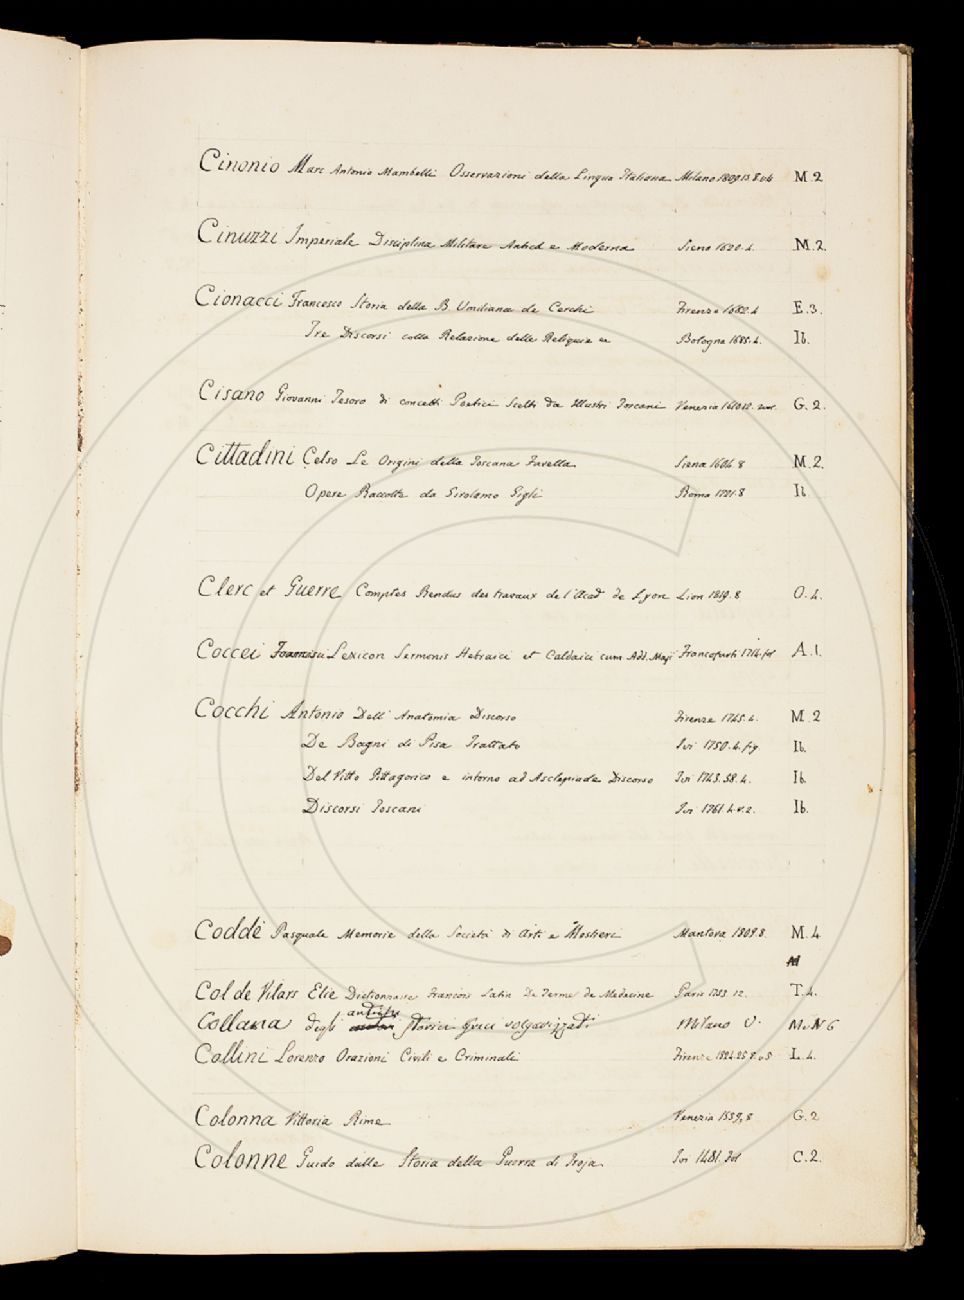 Cinonio Marc Antonio Mambelli Osservazioni della Lingua Italiana Milano 1809.13.8.v.4 M.2
Cinuzzi Imperiale Disciplina Militare Antica e Moderna Siena 1620.4. M.2.
Cionacci Francesco Storia della B. Umiliana de Cerchi Firenze 1682.4 E.3.
Tre Discorsi colla Relazione delle Reliquie ec Bologna 1685.4. Ib.
Cisano Giovanni Tesoro di concetti Poetici Scelti da Illustri Toscani Venezia 1610.12. G.2.
Cittadini Celso Le Origini della Toscana Favella Siena 1604 8 M.2.
Opere Raccolte da Girolamo Gigli Roma 1721.8 Ib.
Clerc et Guerre Comptes Rendus des travaux de l'Acad. de Lyon Lion 1819.8 O.4.
Coccei Lexicon Sermonis Hebraici et Caldaici cum Adl. Maji Francofurti 1714.fol A.1.
Cocchi Antonio Dell' Anatomia Discorso Firenze 1745.4. M.2
De Bagni di Pisa Trattato Ivi 1750.4.fig. Ib.
Del Vitto Pittagorico e intorno ad Asclepiade Discorso Ivi 1743.58.4. Ib.
Discorsi Toscani Ivi 1761.4.v.2. Ib.
Coddè Pasquale Memorie della Società di Arti e Mestieri Mantova 1809.8. M.4
M
Col de Vilars Elie Dictionnaire François Latin De Terme de Medecine Paris 1753.12. T.4.
antichi
Collana degli storici greci volgarizzati Milano V. M.N 6
Collini Lorenzo Orazioni Civili e Criminali Firenze 1824.25.8.v.5 L.4.
Colonna Vittoria Rime Venezia 1559,8 G.2
Colonne Guido dalle Storia della Guerra di Troja Ivi 1481.Fol C.2.